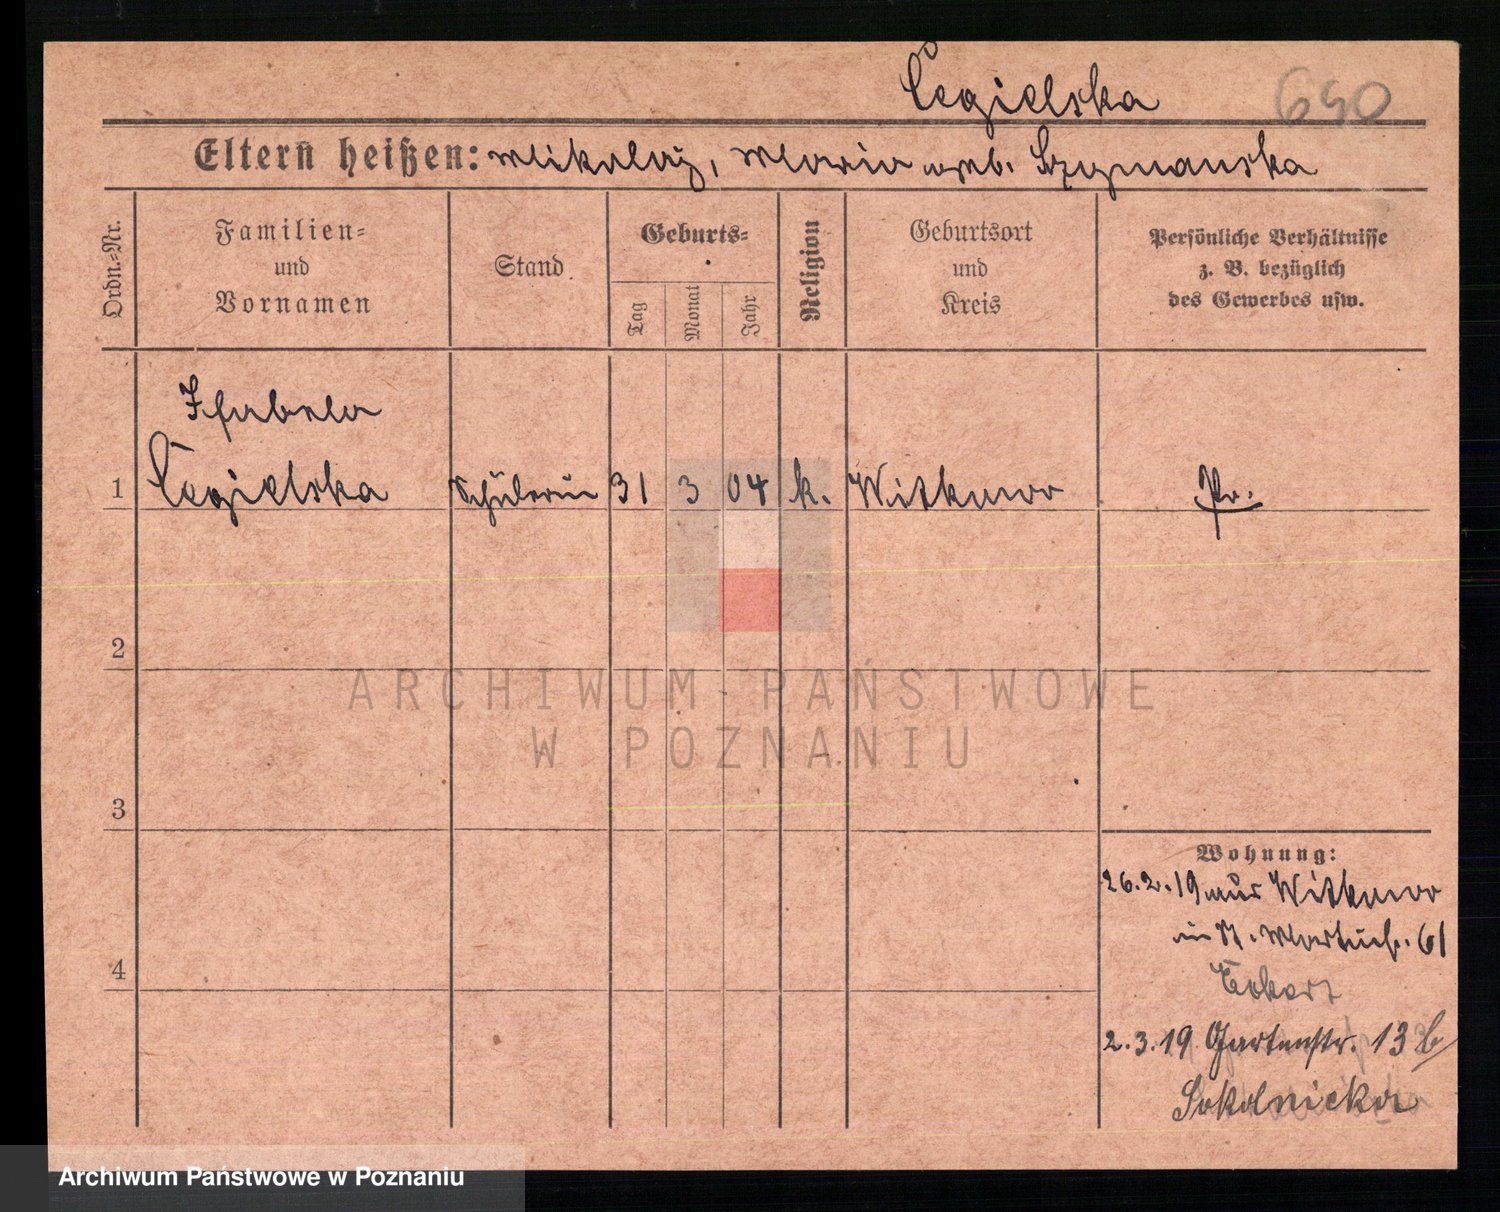 Cegielska 640
Eltern heißen: Mikolaj, Maria geb. Szymanska
Ordn.-Nr.
Familien-
und
Vornamen
Stand
Geburts-
Tag
Monat
Jahr
Religion
Geburtsort
und
Kreis
Persönliche Verhältnisse
z. B. bezüglich
des Gewerbes usw.
Isabela
1 Cegielska Schülerin 31 3 04 k. Witkowo Pr.
2
ARCHIWUM PAŃSTWOWE
W POZNANIU
3
Wohnung:
26.2.19 aus Witkowo
in St. Martinstr. 61
4
Eckert
2.3.19 Gartenstr. 13 b
Sokolnicka
Archiwum Państwowe w Poznaniu